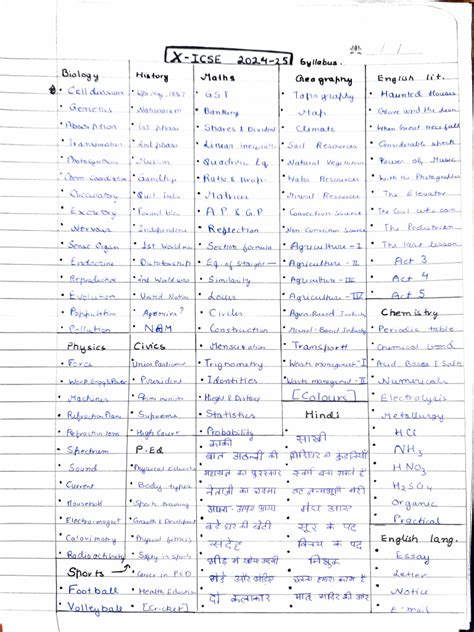 X-ICSE 2024-25 Syllabus.
Biology
Cell division
Genetics
Absorption
Transpiration
Photosynthesis
Chem Coordination
Circulatory
Excretory
Nervous
Sense Organ
Endocrine
Reproductive
Evolution
Population
Pollution
Physics
Force
Work Energy & Power
Machines
Refraction Plane
Refraction lens
Spectrum
Sound
Current
Household
Electro-magnet
Radioactivity
Sports →
Football
Volleyball
History
1857
Nationalism
1st phase
2nd phase
Muslim
Gandhiji
Quit India
Forward bloc
Independence
1st World war
Dictatorship
2nd World war
United Nation
NAM
Civics
Union Parliament
President
Prime minister
Supreme
High Court
P.Ed
Physical Education
Body types
Sports training
Growth & Development
Physical fitness
Safety in sports
Career in P.ED
Health Education
[Cricket]
Maths
GST
Banking
Shares & Dividend
Linear inequations
Quadratic Eq
Ratio & Prop.
Matrices
A.P & G.P
Reflection
Section formula
Eq. of Straight
Similarity
Locus
Circles
Construction
Mensuration
Trignometry
Identities
Height & Distance
Statistics
Probability
काकी
बात अठन्नी की
महायज्ञ का पुरस्कार
नेताजी का चश्मा
अपना-अपना भाग्य
बड़े घर की बेटी
संदेह
भीड़ में खोया आदमी
भेड़ें और भेड़िए
दो कलाकार
Geography
Topography
Map
Climate
Soil Resources
Natural Vegetation
Water Resources
Mineral Resources
Agriculture - I
Agriculture - II
Agriculture - III
Agriculture - IV
Agro-Based Industry
Mineral-Based Industry
Transport
Waste managment - I
Waste managment - II
[Colours]
Hindi
साखी
गिरिधर की कुंडलियाँ
स्वर्ग बना सकते हैं
वह जन्मभूमि मेरी
मेघ आए
सूर के पद
विनय के पद
भिक्षुक
चलना हमारा काम है
मातृ मंदिर की ओर
English lit.
Haunted Houses
Glove and the Lions
When Great trees fall
Considerable speck
Power of Music
With the Photographer
The Elevator
The Girl who can
The Pedestrian
The last lesson
Act 3
Act 4
Act 5
Chemistry
Periodic table
Chemical bond
Acid Bases & Salts
Numericals
Electrolysis
Metallurgy
HCl
NH₃
HNO₃
H₂SO₄
Organic
Practical
English lang.
Essay
Letter
Notice
E-mail